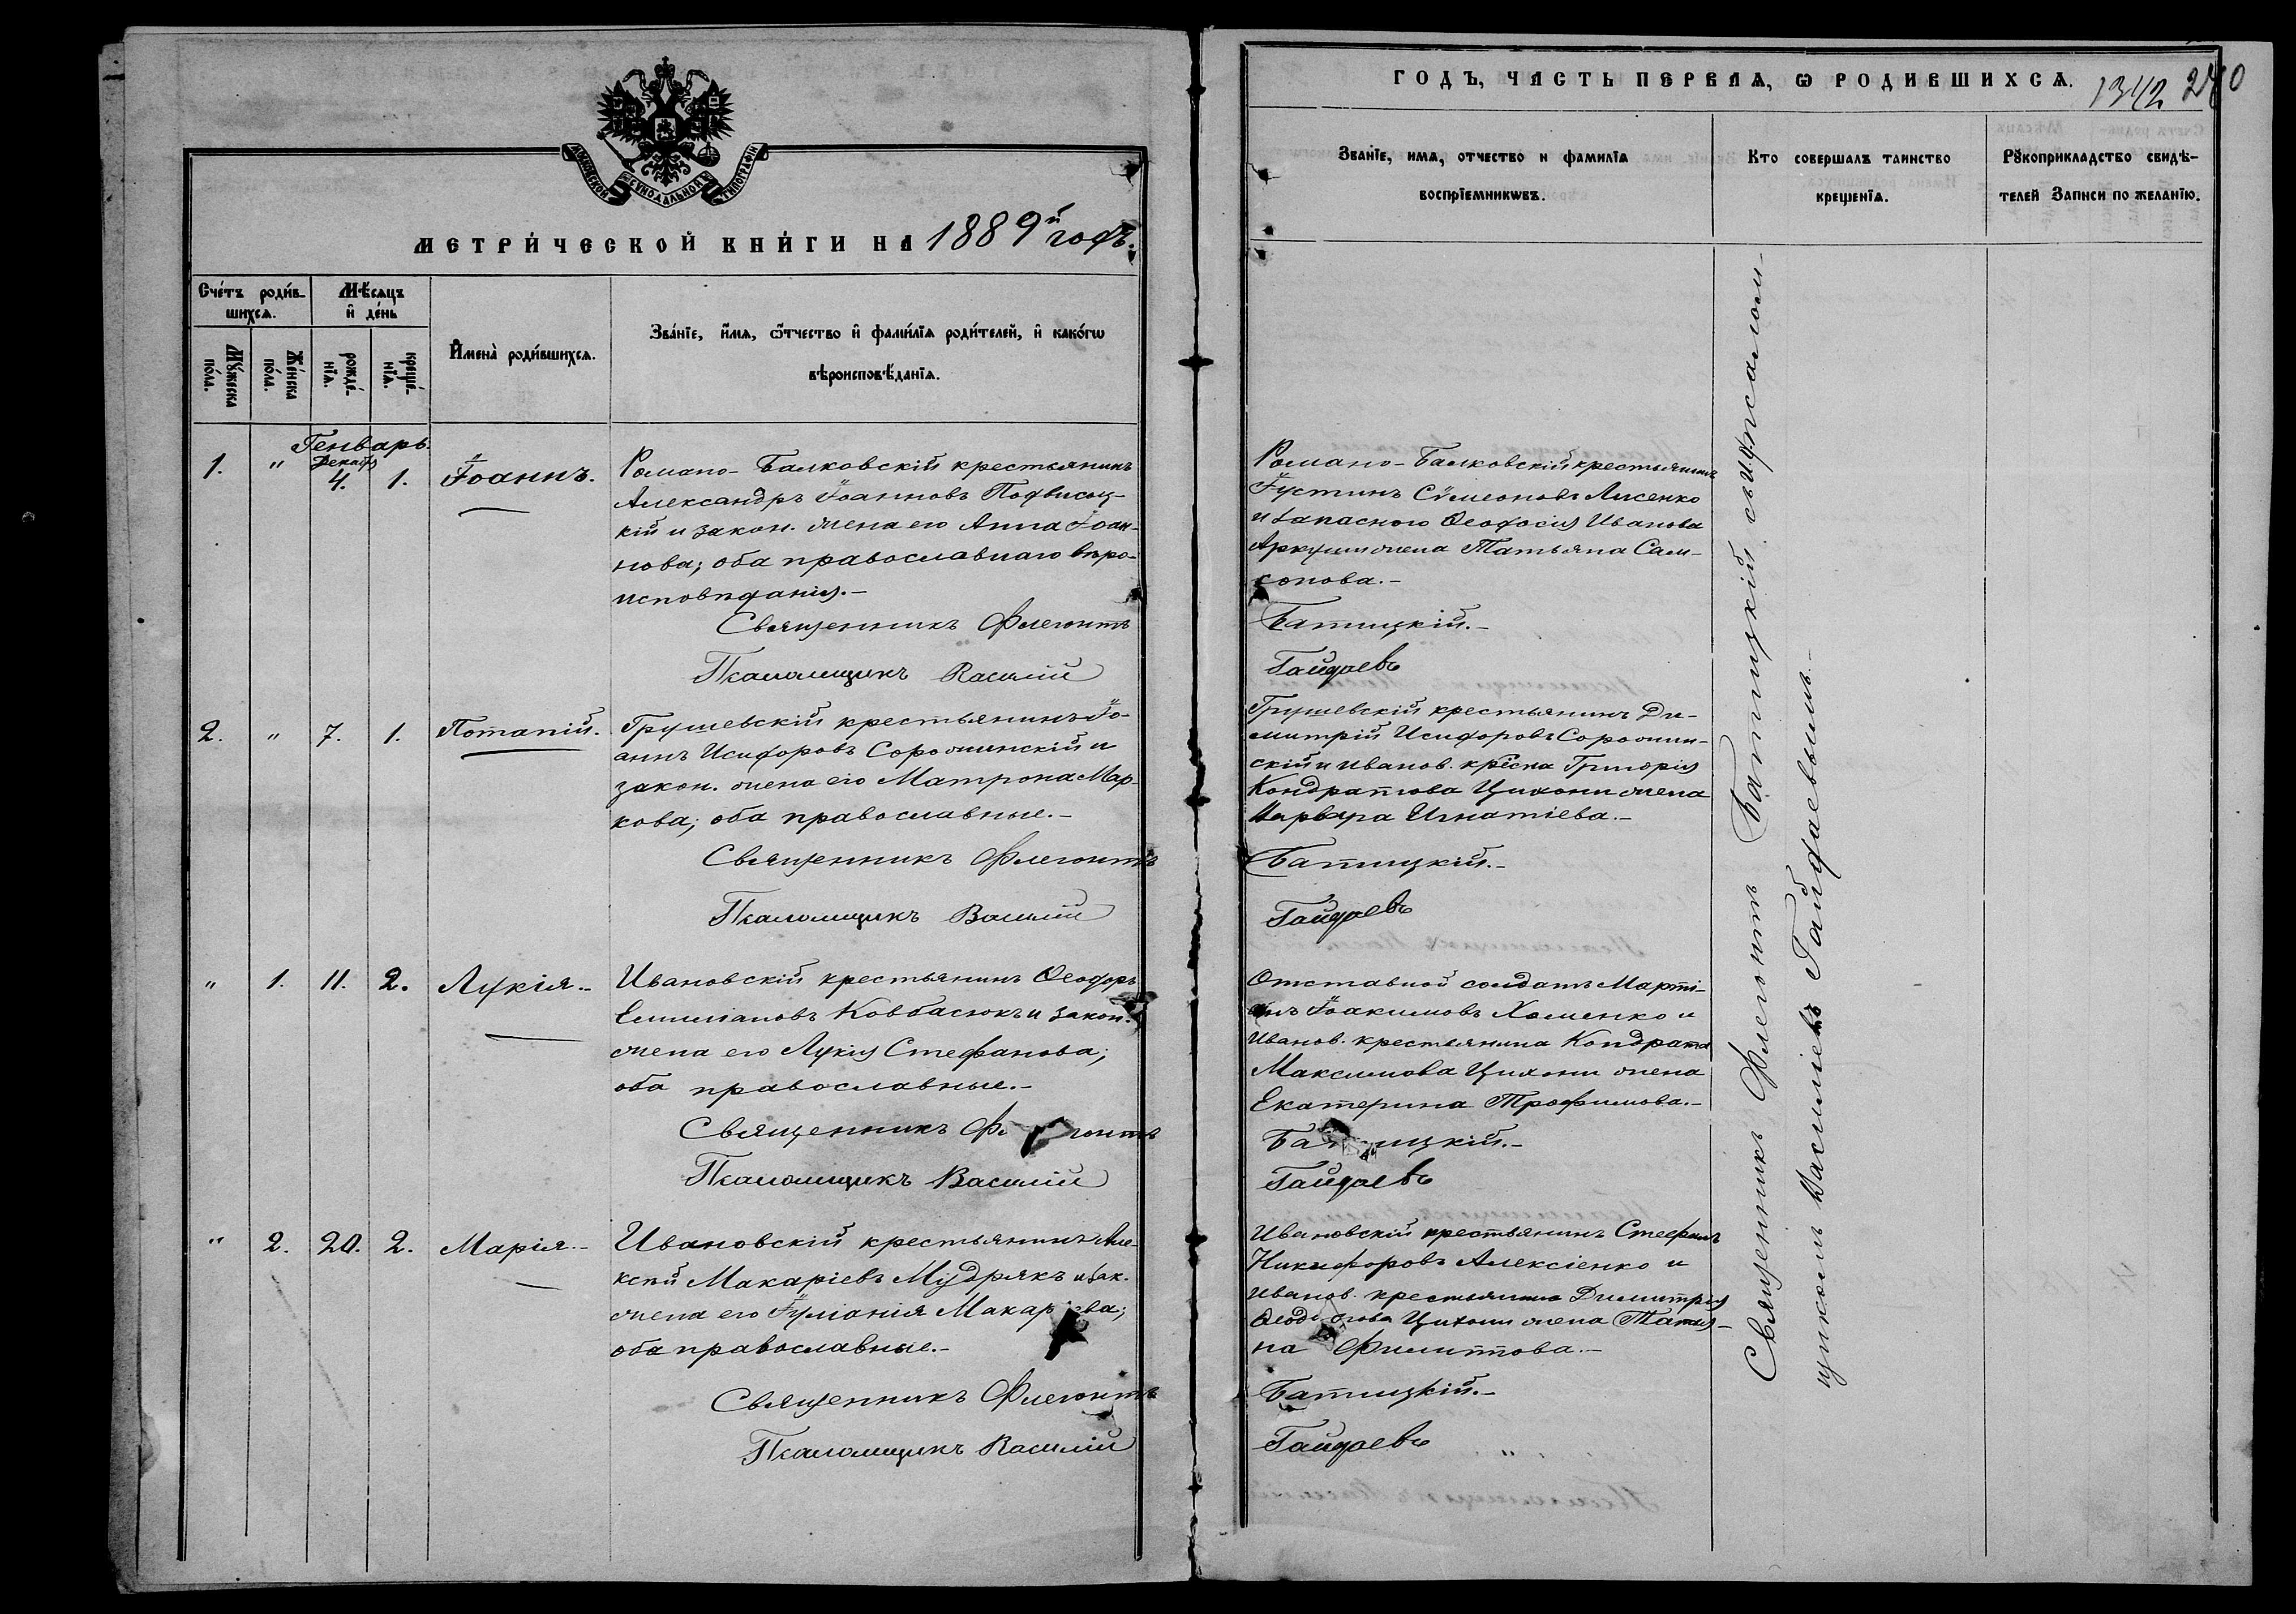 МОСКОВСКОЙ СѴНОДАЛЬНОЙ ТИПОГРАФІИ
МЕТРИ́ЧЕСКОЙ КНИ́ГИ НА 1889й годъ.
Сче́тъ роди́в-
шихсѧ.
Мѣ́сѧцъ
и҆ де́нь
Мꙋ́жеска
по́ла.
Же́нска
по́ла.
рожде́-
нїѧ.
креще́-
нїѧ.
И҆мена̀ роди́вшихсѧ.
Зва́нїе, и҆́мѧ, ѻ҆́тчество и҆ фами́лїѧ роди́телей, и҆ како́гѡ
вѣроисповѣ́данїѧ.
Генварь.
1.
"
Декабр
4.
1.
Іоаннъ.
Романо-Балковскій крестьянинъ
Александръ Іоанновъ Подвисоц-
кій и закон. жена его Анна Іоан-
нова; оба православнаго вѣро-
исповѣданія.-
Священникъ Флегонтъ
Псаломщикъ Василій
2.
"
7.
1.
Потапій.
Грушевскій крестьянинъ Іо-
аннъ Исидоровъ Сорочинскій и
закон. жена его Матрона Мар-
кова; оба православные.-
Священникъ Флегонтъ
Псаломщикъ Василій
"
1.
11.
2.
Лукія.-
Ивановскій крестьянинъ Ѳеодоръ
Емиліановъ Ковбасюкъ и закон.
жена его Лукія Стефанова;
оба православные.-
Священникъ Ф гонтъ
Псаломщикъ Василій
"
2.
20.
2.
Марія.-
Ивановскій крестьянинъ Але-
ксѣй Макаріевъ Мудрякъ и зак.
жена его Іуліанія Макар ева;
оба православные.-
Священникъ Флегонтъ
Псаломщикъ Василій
ГОДЪ, ЧАСТЬ ПЕРВАѦ, Ѡ РОДИВШИХСѦ.
1342 240
Званїе, имѧ, отчество и фамилїѧ
воспрїемникѡвъ.
Кто совершалъ таинство
крещенїѧ.
Рꙋкоприкладство свидѣ-
телей Записи по желанїю.
Романо-Балковскій крестьянинъ
Іустинъ Сѵмеоновъ Лисенко
и запасного Ѳеодосія Иванова
Аркуши жена Татьяна Сам-
сонова.-
Батицкій.-
Гайдаевъ
Грушевскій крестьянинъ Ди-
митрій Исидоровъ Сорочин-
скій и Иванов. кр҃сна Григорія
Кондратова Цихони жена
Варвара Игнатіева.-
Батицкій.-
Гайдаевъ
Отставной солдатъ Марті-
анъ Іоакимовъ Хоменко и
Иванов. крестьянина Кондрата
Максимова Цихони жена
Екатерина Трофимова.-
Ба ицкій.-
Гайдаевъ
Ивановскій крестьянинъ Стефанъ
Никифоровъ Алексіенко и
Иванов. крестьянина Димитрія
Цихони жена Татія-
на Филиппова.-
Батицкій.-
Гайдаевъ
Священникъ Флегонтъ Батицкій съ псалом-
щикомъ Василіемъ Гайдаевымъ.-